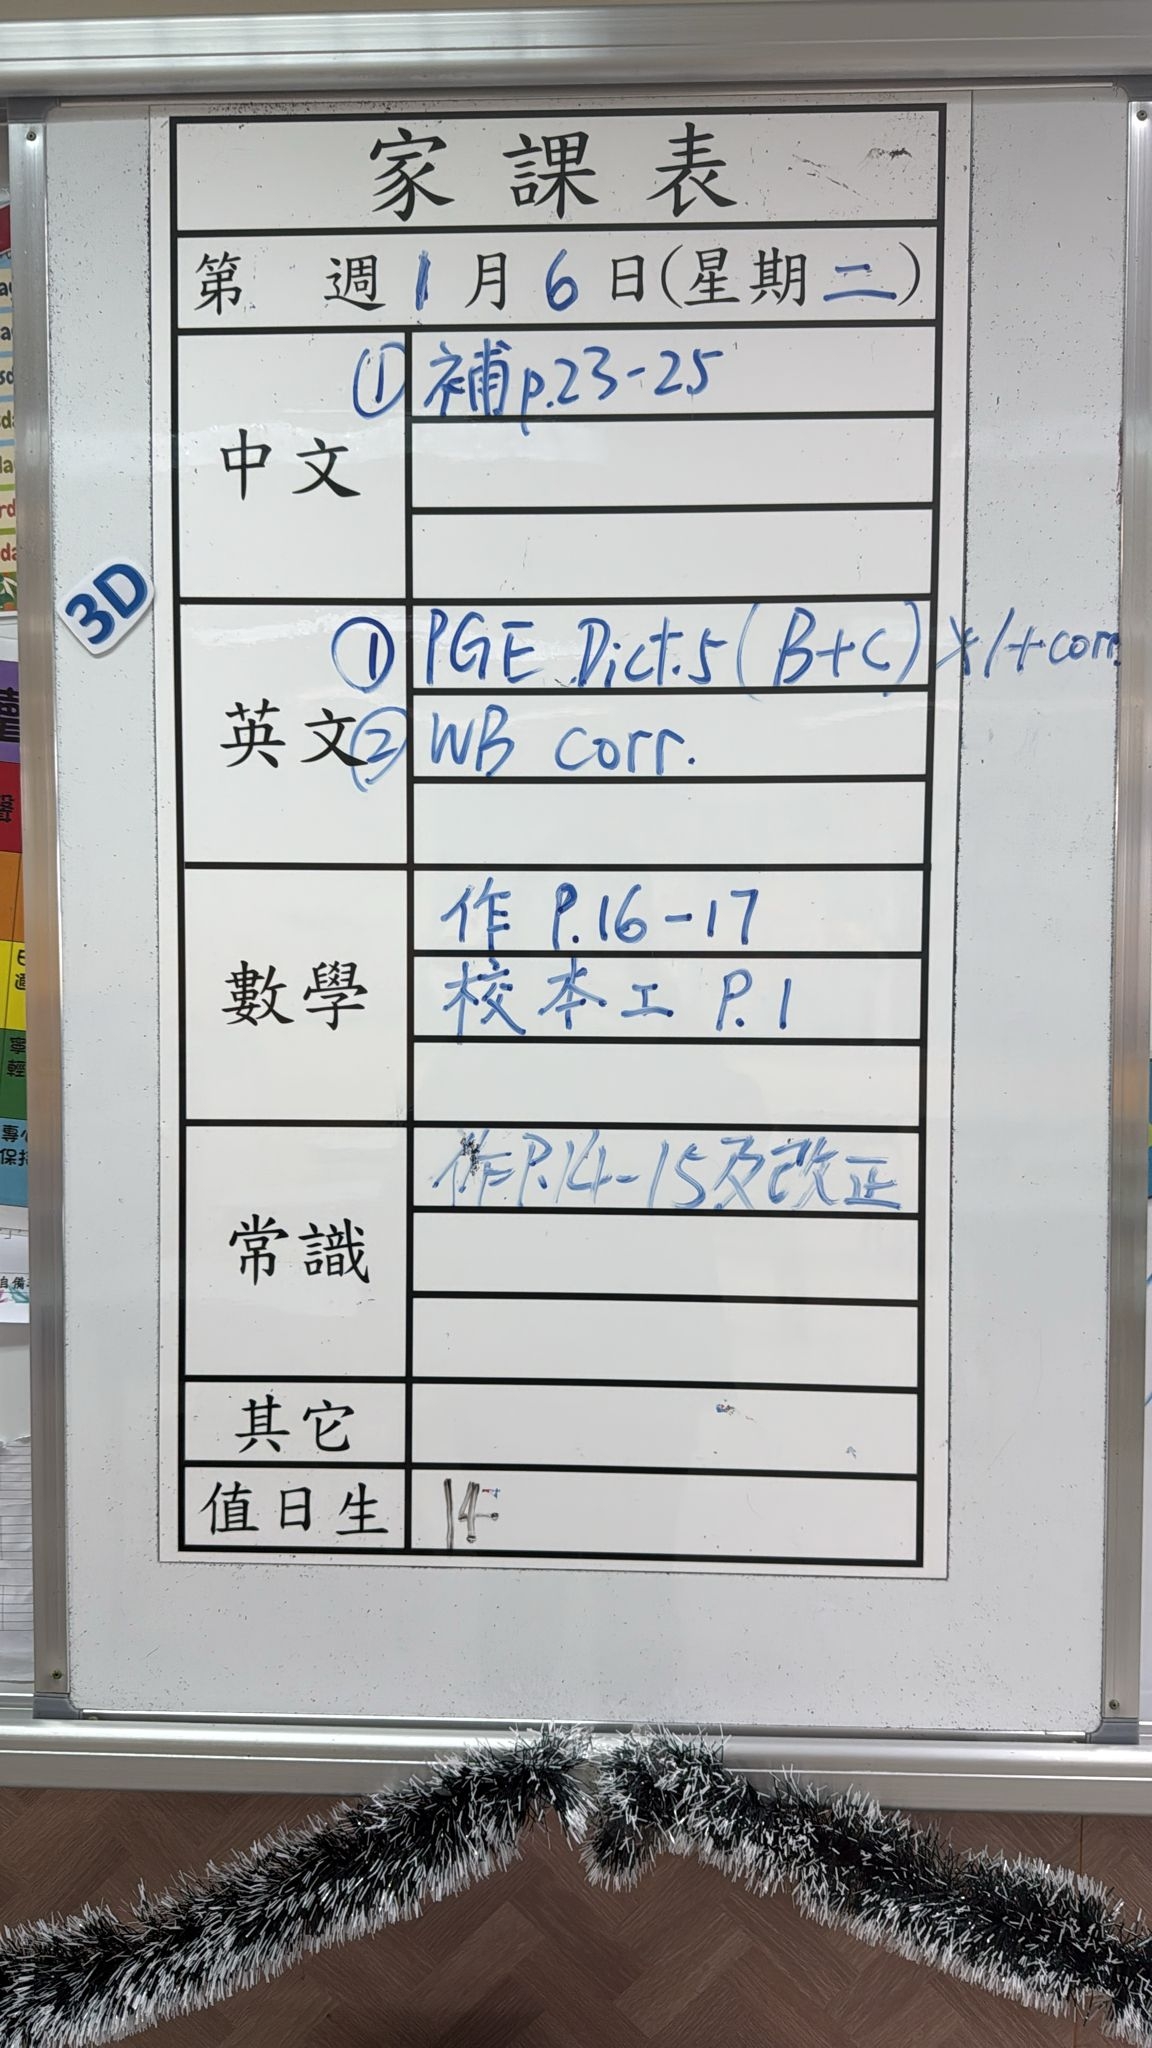 家課表
第 週 1月6日(星期二)
中文
① 補p.23-25
3D
英文
① PGE Dict.5 (B+C) x1+corr.
② WB corr.
數學
作 P.16-17
校本工 P.1
常識
作P.14-15及改正
其它
值日生
14